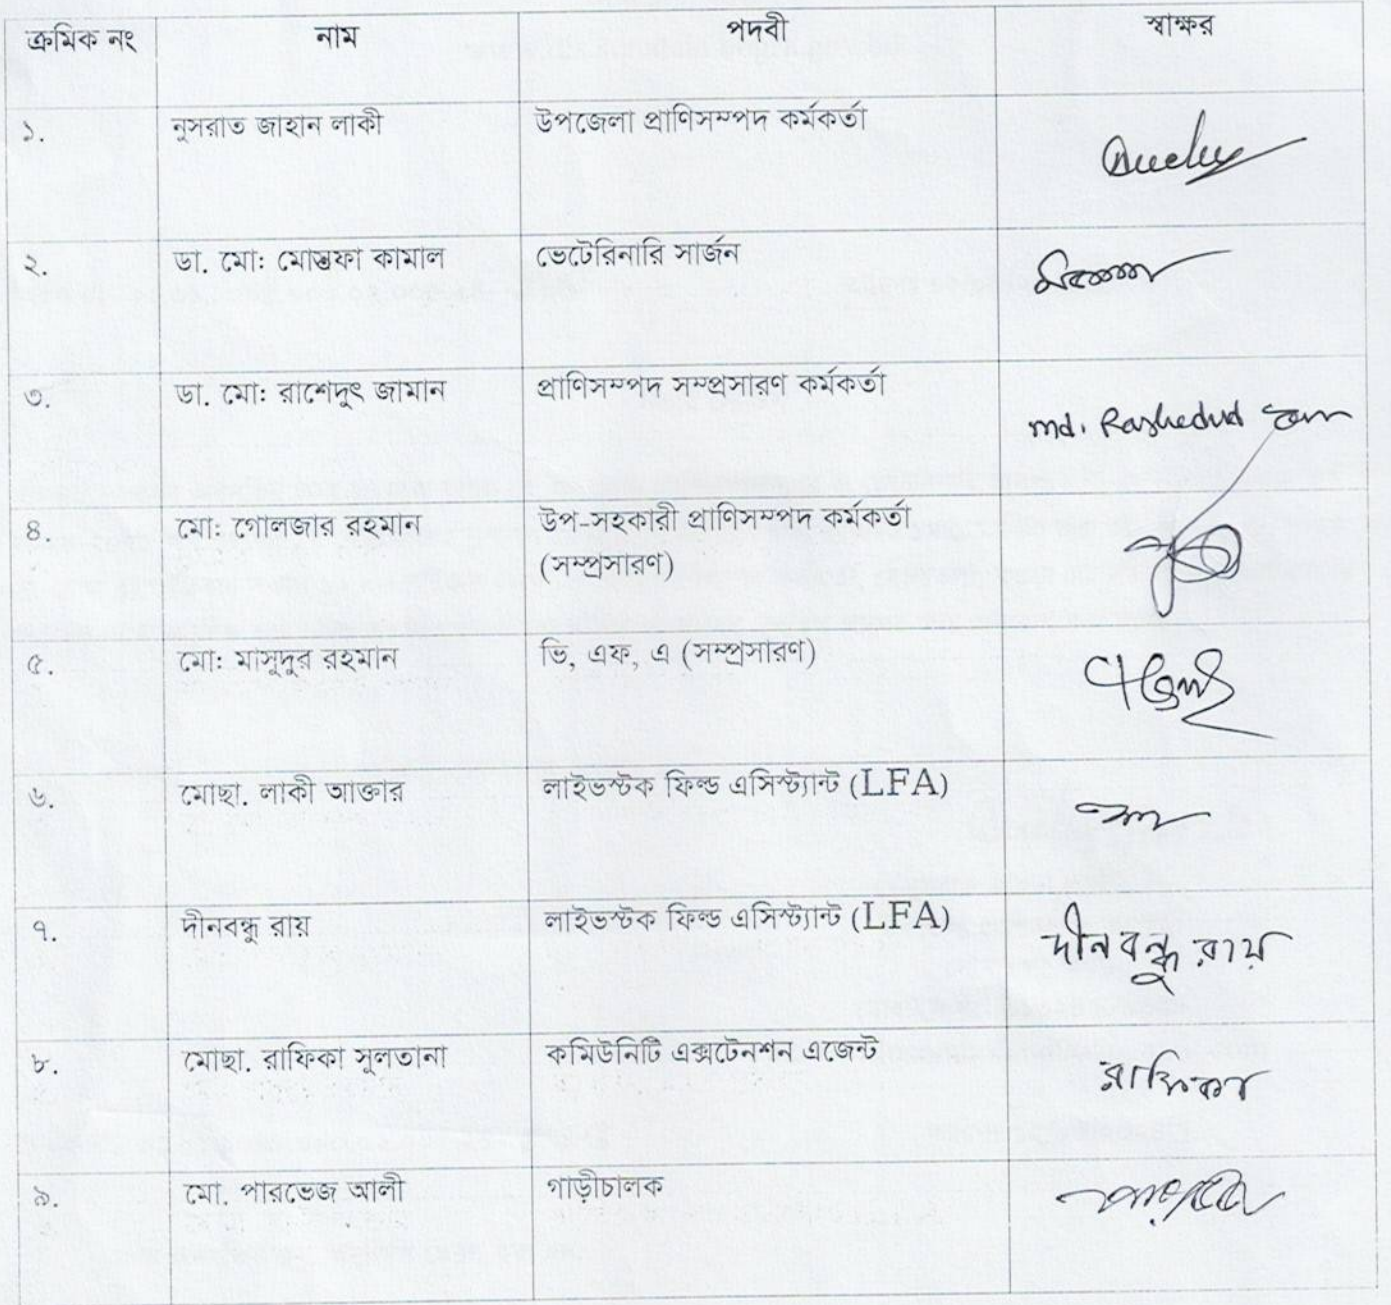 ক্রমিক নং নাম পদবী স্বাক্ষর
১. নুসরাত জাহান লাকী উপজেলা প্রাণিসম্পদ কর্মকর্তা
২. ডা. মো: মোস্তফা কামাল ভেটেরিনারি সার্জন
৩. ডা. মো: রাশেদুৎ জামান প্রাণিসম্পদ সম্প্রসারণ কর্মকর্তা
md. Rashedud
৪. মো: গোলজার রহমান উপ-সহকারী প্রাণিসম্পদ কর্মকর্তা
(সম্প্রসারণ)
৫. মো: মাসুদুর রহমান ভি, এফ, এ (সম্প্রসারণ)
৬. মোছা. লাকী আক্তার লাইভস্টক ফিল্ড এসিস্ট্যান্ট (LFA)
৭. দীনবন্ধু রায় লাইভস্টক ফিল্ড এসিস্ট্যান্ট (LFA) দীনবন্ধু রায়
৮. মোছা. রাফিকা সুলতানা কমিউনিটি এক্সটেনশন এজেন্ট রাফিকা
৯. মো. পারভেজ আলী গাড়ীচালক